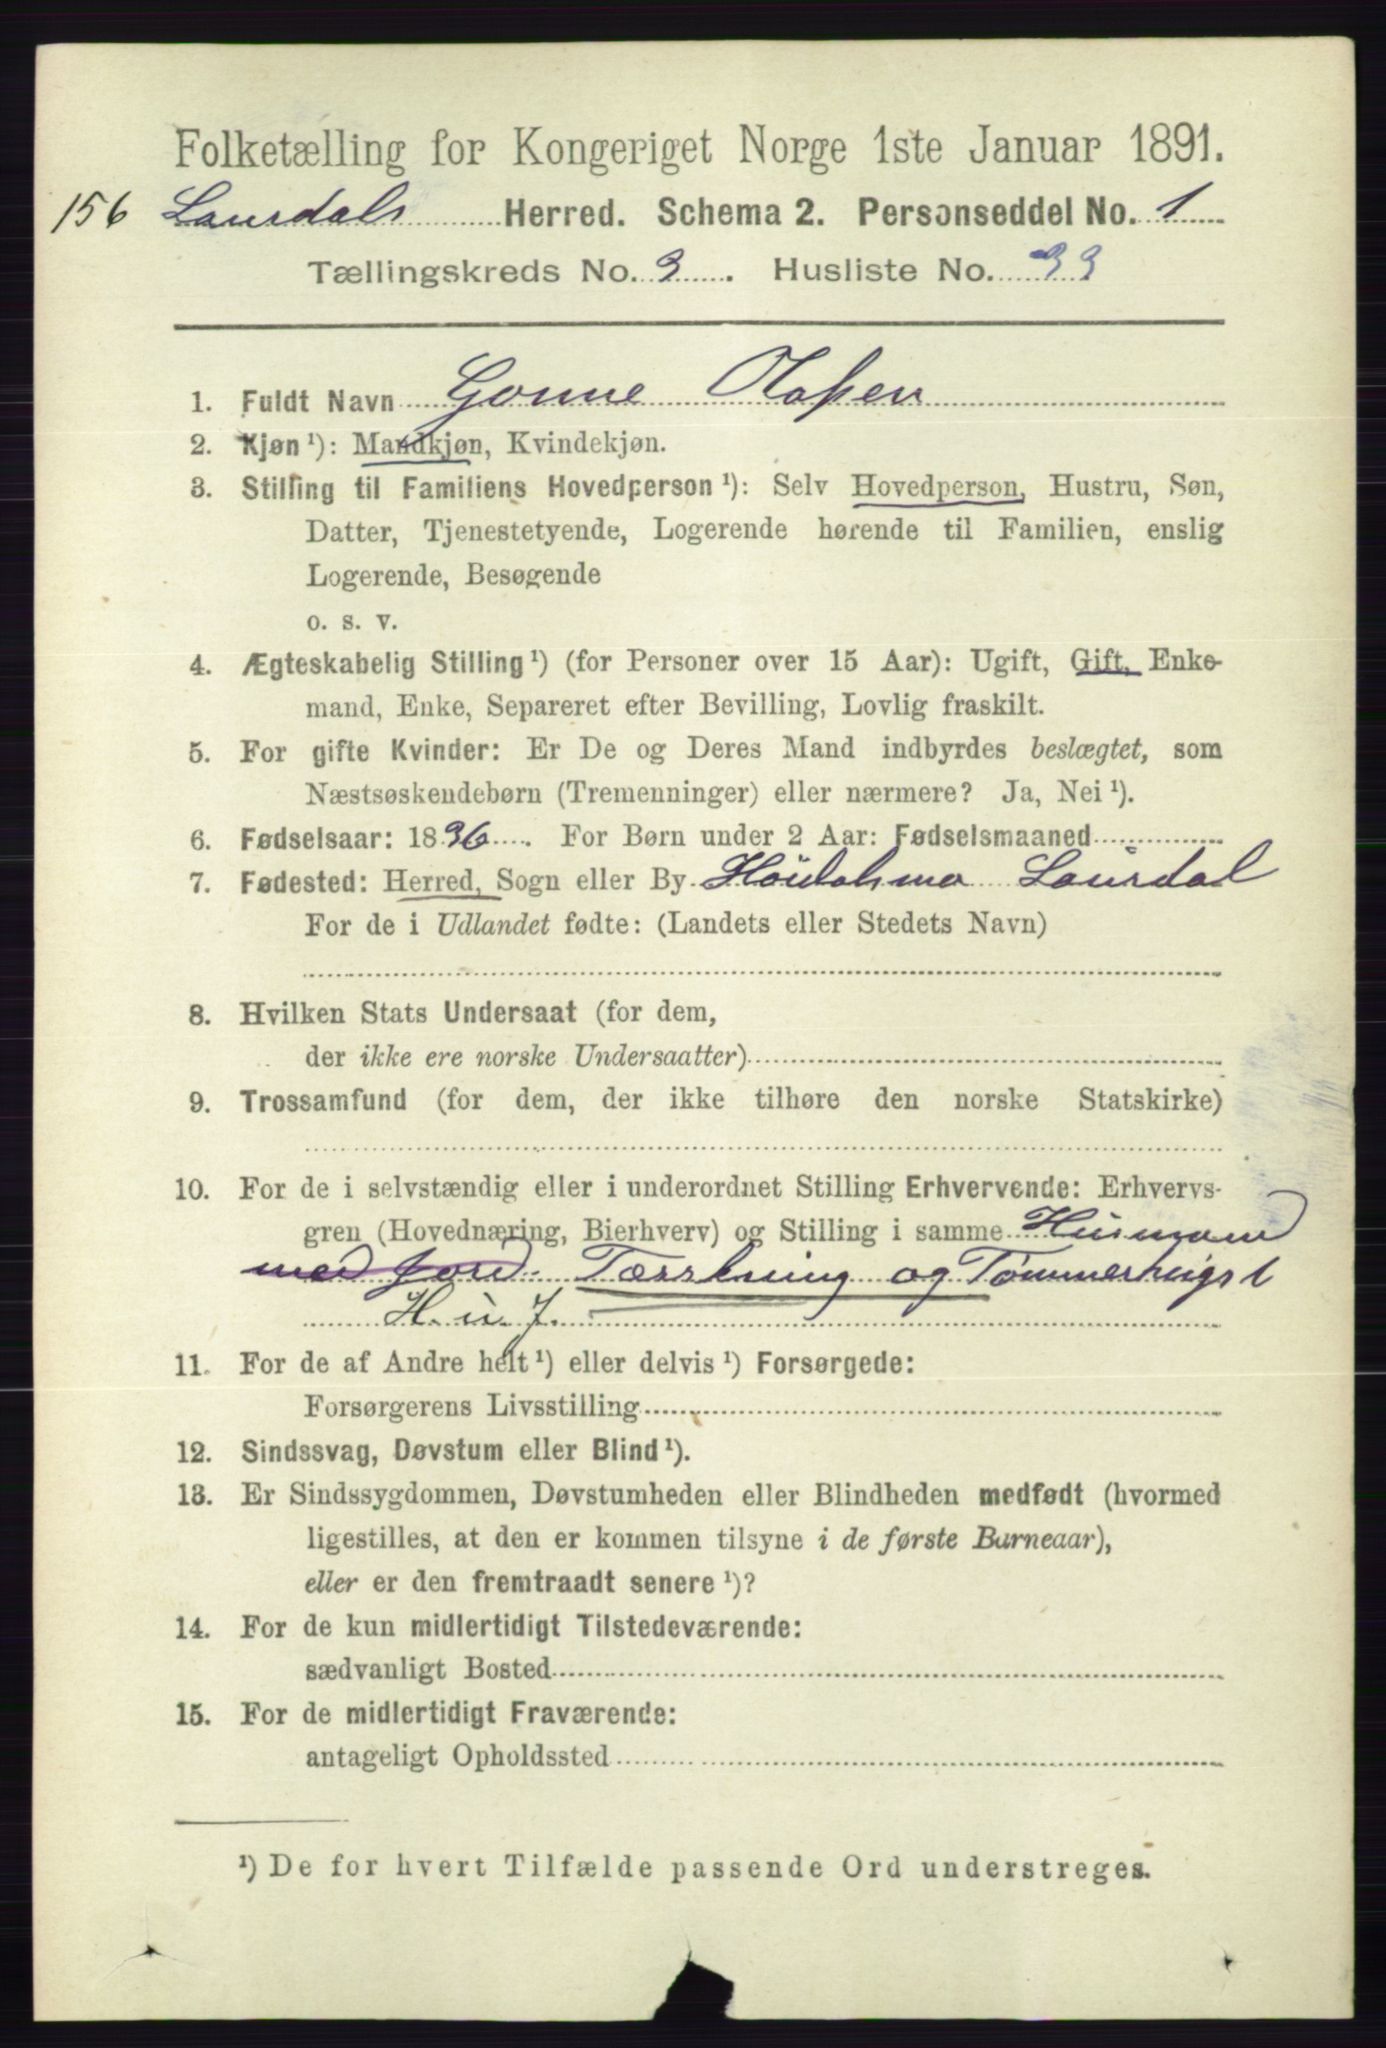 Folketælling for Kongeriget Norge 1ste Januar 1891.
156 Laurdals Herred. Schema 2. Personseddel No. 1
Tællingskreds No. 3. Husliste No. 33
1. Fuldt Navn Gonne Olsen
2. Kjøn ¹): Mandkjøn, Kvindekjøn.
3. Stilling til Familiens Hovedperson ¹): Selv Hovedperson, Hustru, Søn,
Datter, Tjenestetyende, Logerende hørende til Familien, enslig
Logerende, Besøgende
o. s. v.
4. Ægteskabelig Stilling ¹) (for Personer over 15 Aar): Ugift, Gift, Enke-
mand, Enke, Separeret efter Bevilling, Lovlig fraskilt.
5. For gifte Kvinder: Er De og Deres Mand indbyrdes beslægtet, som
Næstsøskendebørn (Tremenninger) eller nærmere? Ja, Nei ¹).
6. Fødselsaar: 1836. For Børn under 2 Aar: Fødselsmaaned
7. Fødested: Herred, Sogn eller By Laurdal
For de i Udlandet fødte: (Landets eller Stedets Navn)
8. Hvilken Stats Undersaat (for dem,
der ikke ere norske Undersaatter)
9. Trossamfund (for dem, der ikke tilhøre den norske Statskirke)
10. For de i selvstændig eller i underordnet Stilling Erhvervende: Erhvervs-
gren (Hovednæring, Bierhverv) og Stilling i samme Husmand
med Jord. Tærskning og Tømmerhugst
H. u. J.
11. For de af Andre helt ¹) eller delvis ¹) Forsørgede:
Forsørgerens Livsstilling
12. Sindssvag, Døvstum eller Blind ¹).
13. Er Sindssygdommen, Døvstumheden eller Blindheden medfødt (hvormed
ligestilles, at den er kommen tilsyne i de første Barneaar),
eller er den fremtraadt senere ¹)?
14. For de kun midlertidigt Tilstedeværende:
sædvanligt Bosted
15. For de midlertidigt Fraværende:
antageligt Opholdssted
¹) De for hvert Tilfælde passende Ord understreges.